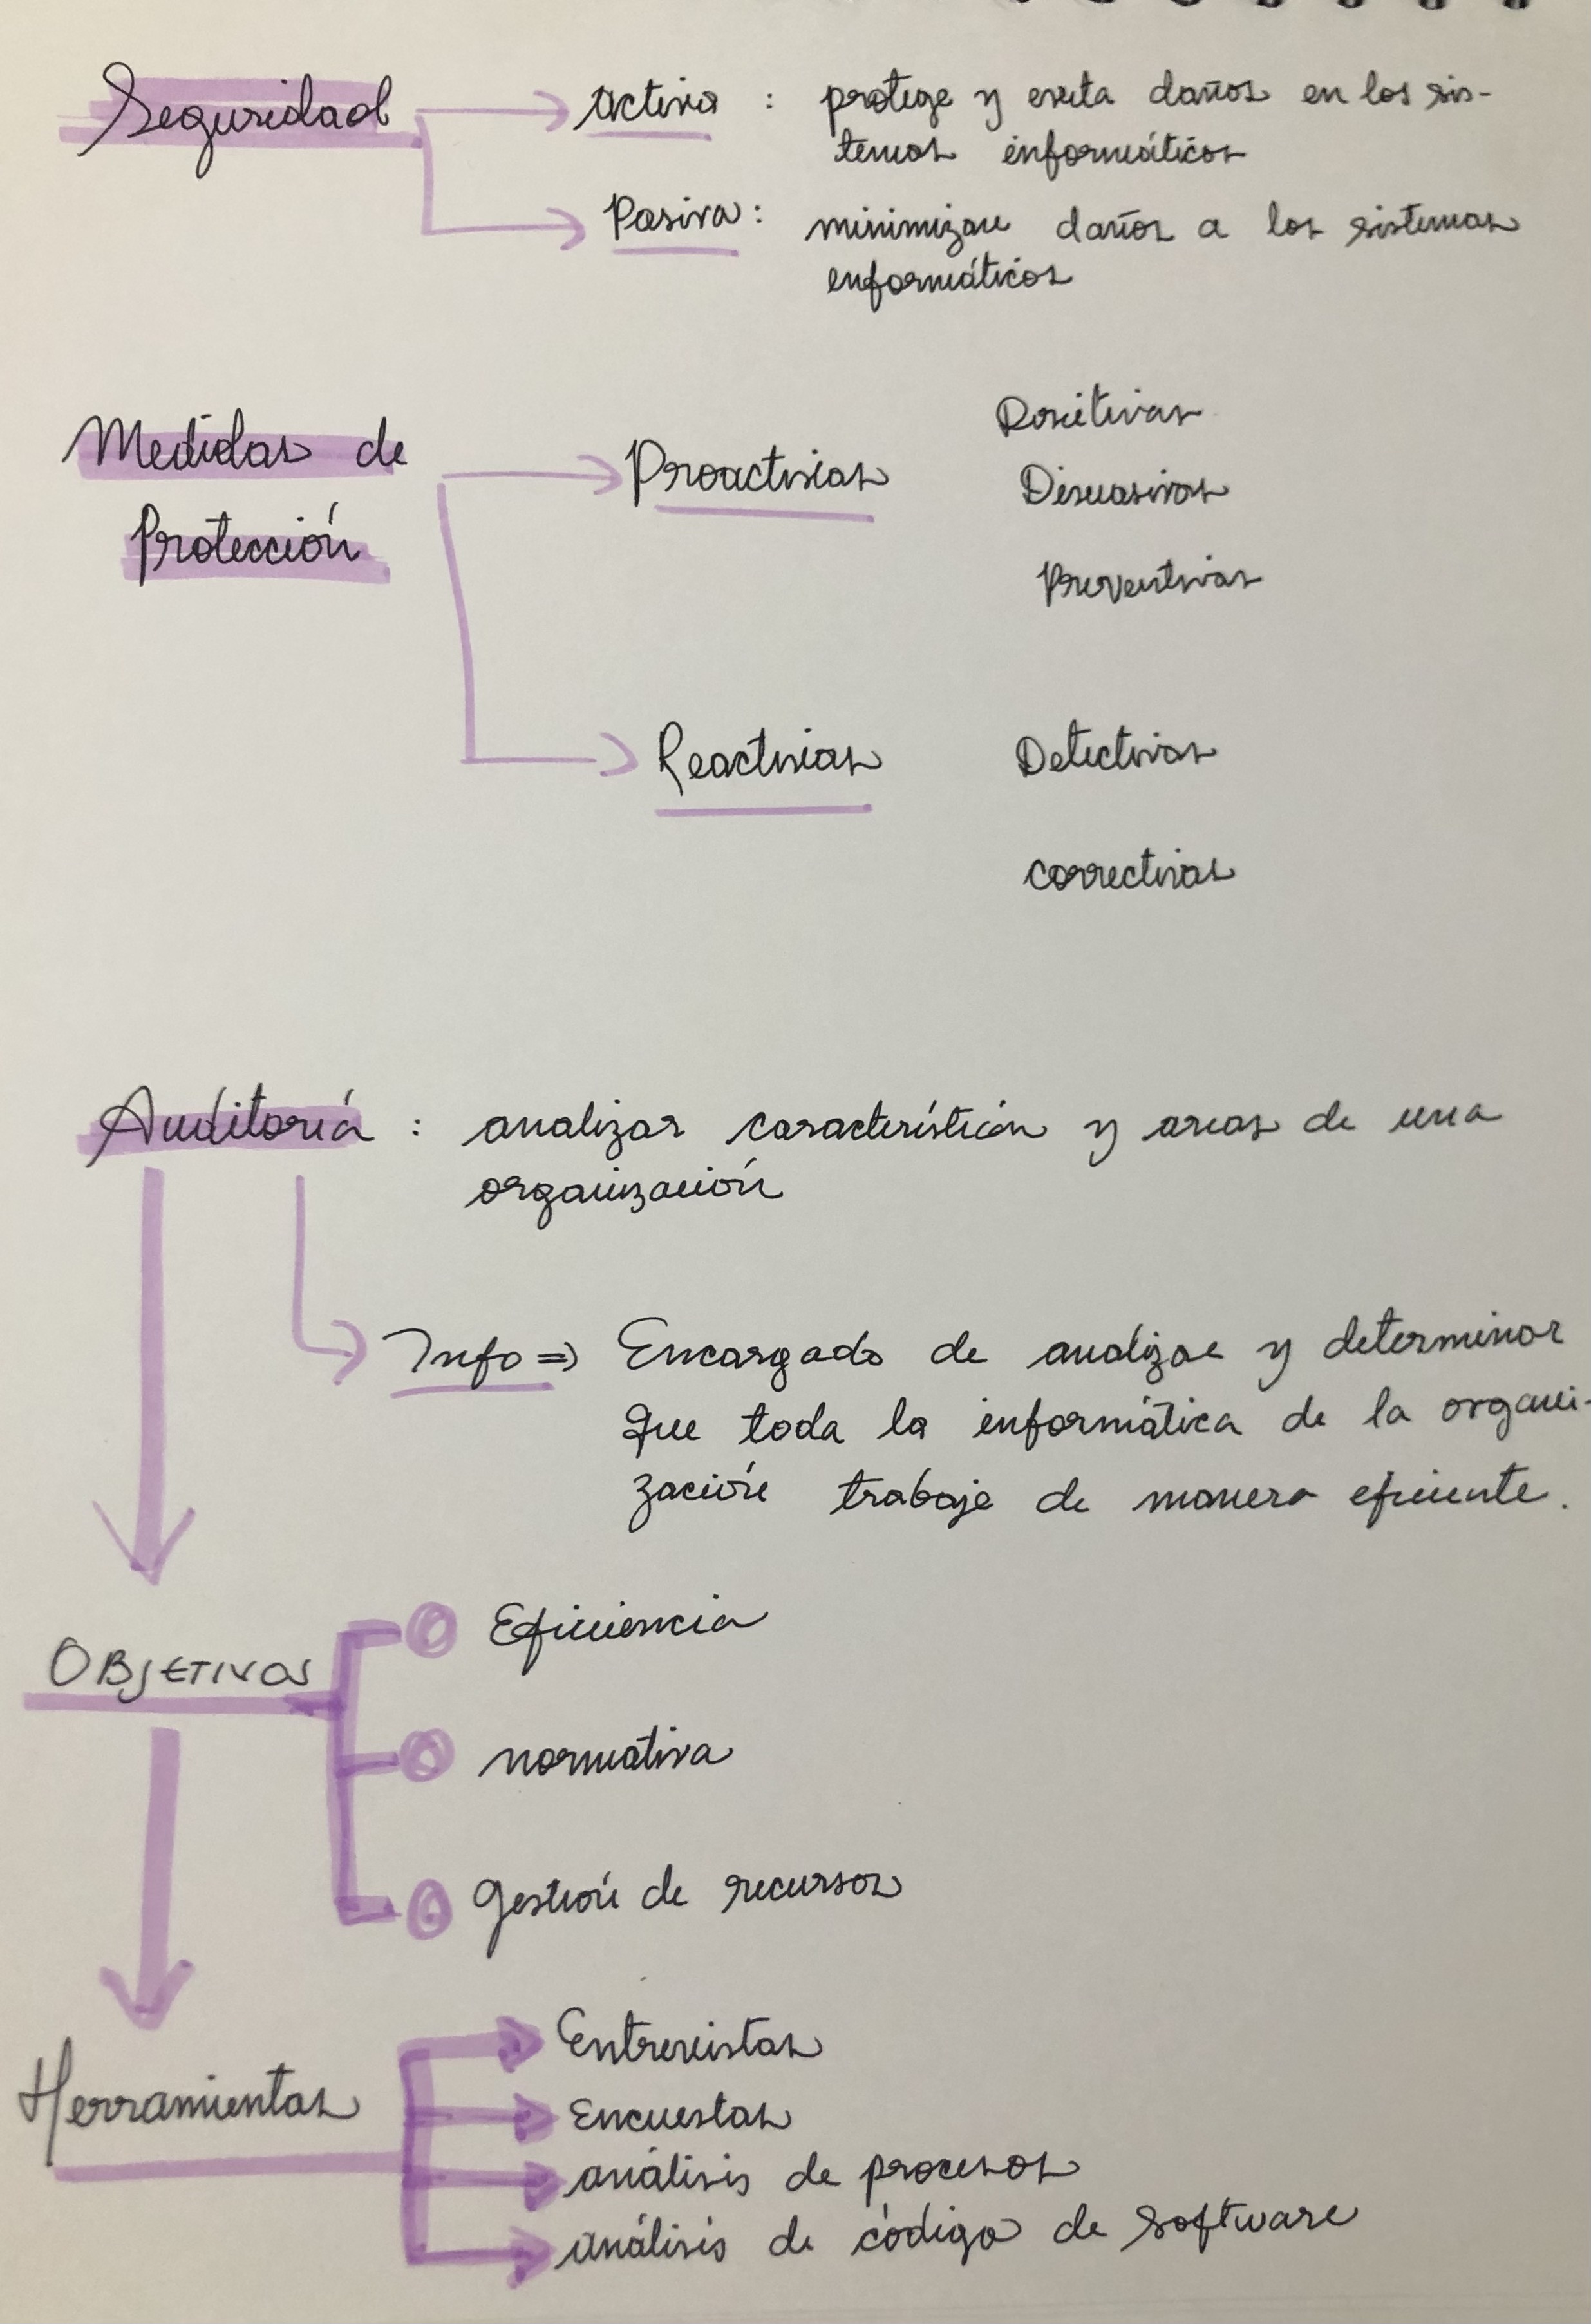 Seguridad → Activa : protege y evita daños en los sis-
temas informáticos
→ Pasiva : minimizar daños a los sistemas
informáticos
Medidas de
Protección
→ Proactivas
Positivas
Disuasivas
Preventivas
→ Reactivas
Detectivas
correctivas
Auditoría : analizar características y areas de una
organización
→ Info => Encargado de analizar y determinar
que toda la informática de la organi-
zación trabaje de manera eficiente.
OBJETIVOS
Eficiencia
normativa
Gestión de recursos
Herramientas
Entrevistas
Encuestas
análisis de procesos
análisis de código de software